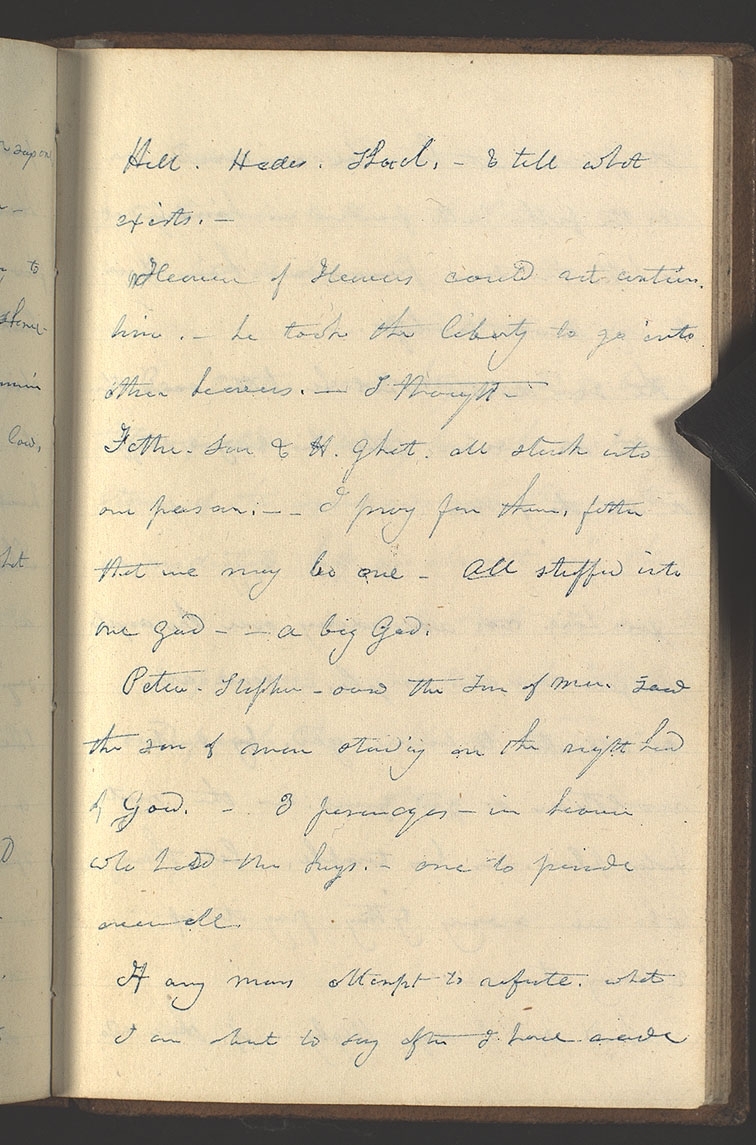 Hell. Hades. Sheol. - & tell what
exists. -
Heaven of Heavens could not contain
him. - he took the liberty to go into
other heavens. - I thought -
Father. Son & H. Ghost. all stuck into
one person. - - I pray for them. father
that we may be one - All stuffed into
one God - - a big God.
Peter. Stephen - saw the Son of man. Saw
the son of man standing on the right hand
of God. - 3 personages - in heaven
who hold the keys. - one to preside
over all.
If any man attempt to refute. what
I am about to say after I have made
upon
to
law,